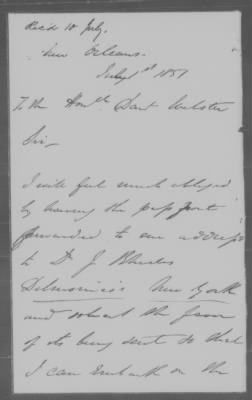 Recd 10 July.
New Orleans.
July 1st 1851
To the Honble Danl Webster
Sir,
I will feel much obliged
by having the passport
forwarded to me address
to D J Rhodes
Delmonico's New York
and submit the favor
of its being sent so that
I can embark on the